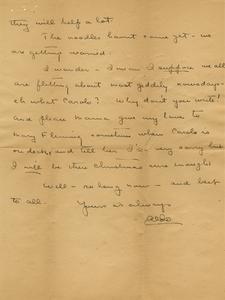 they will help a lot.
The noodles haven't come yet - we
are getting worried.
I wonder - I mean I suppose we all
are flitting about most giddily nowadays -
eh what Carolo? Why don't you write?
And please Mamma give my love to
Mary Fleming sometime when Carolo is
on deck, and tell her I'm very sorry but
I will be there Christmas
Well - so long now - and best
to all.
Yours as always
Aldo